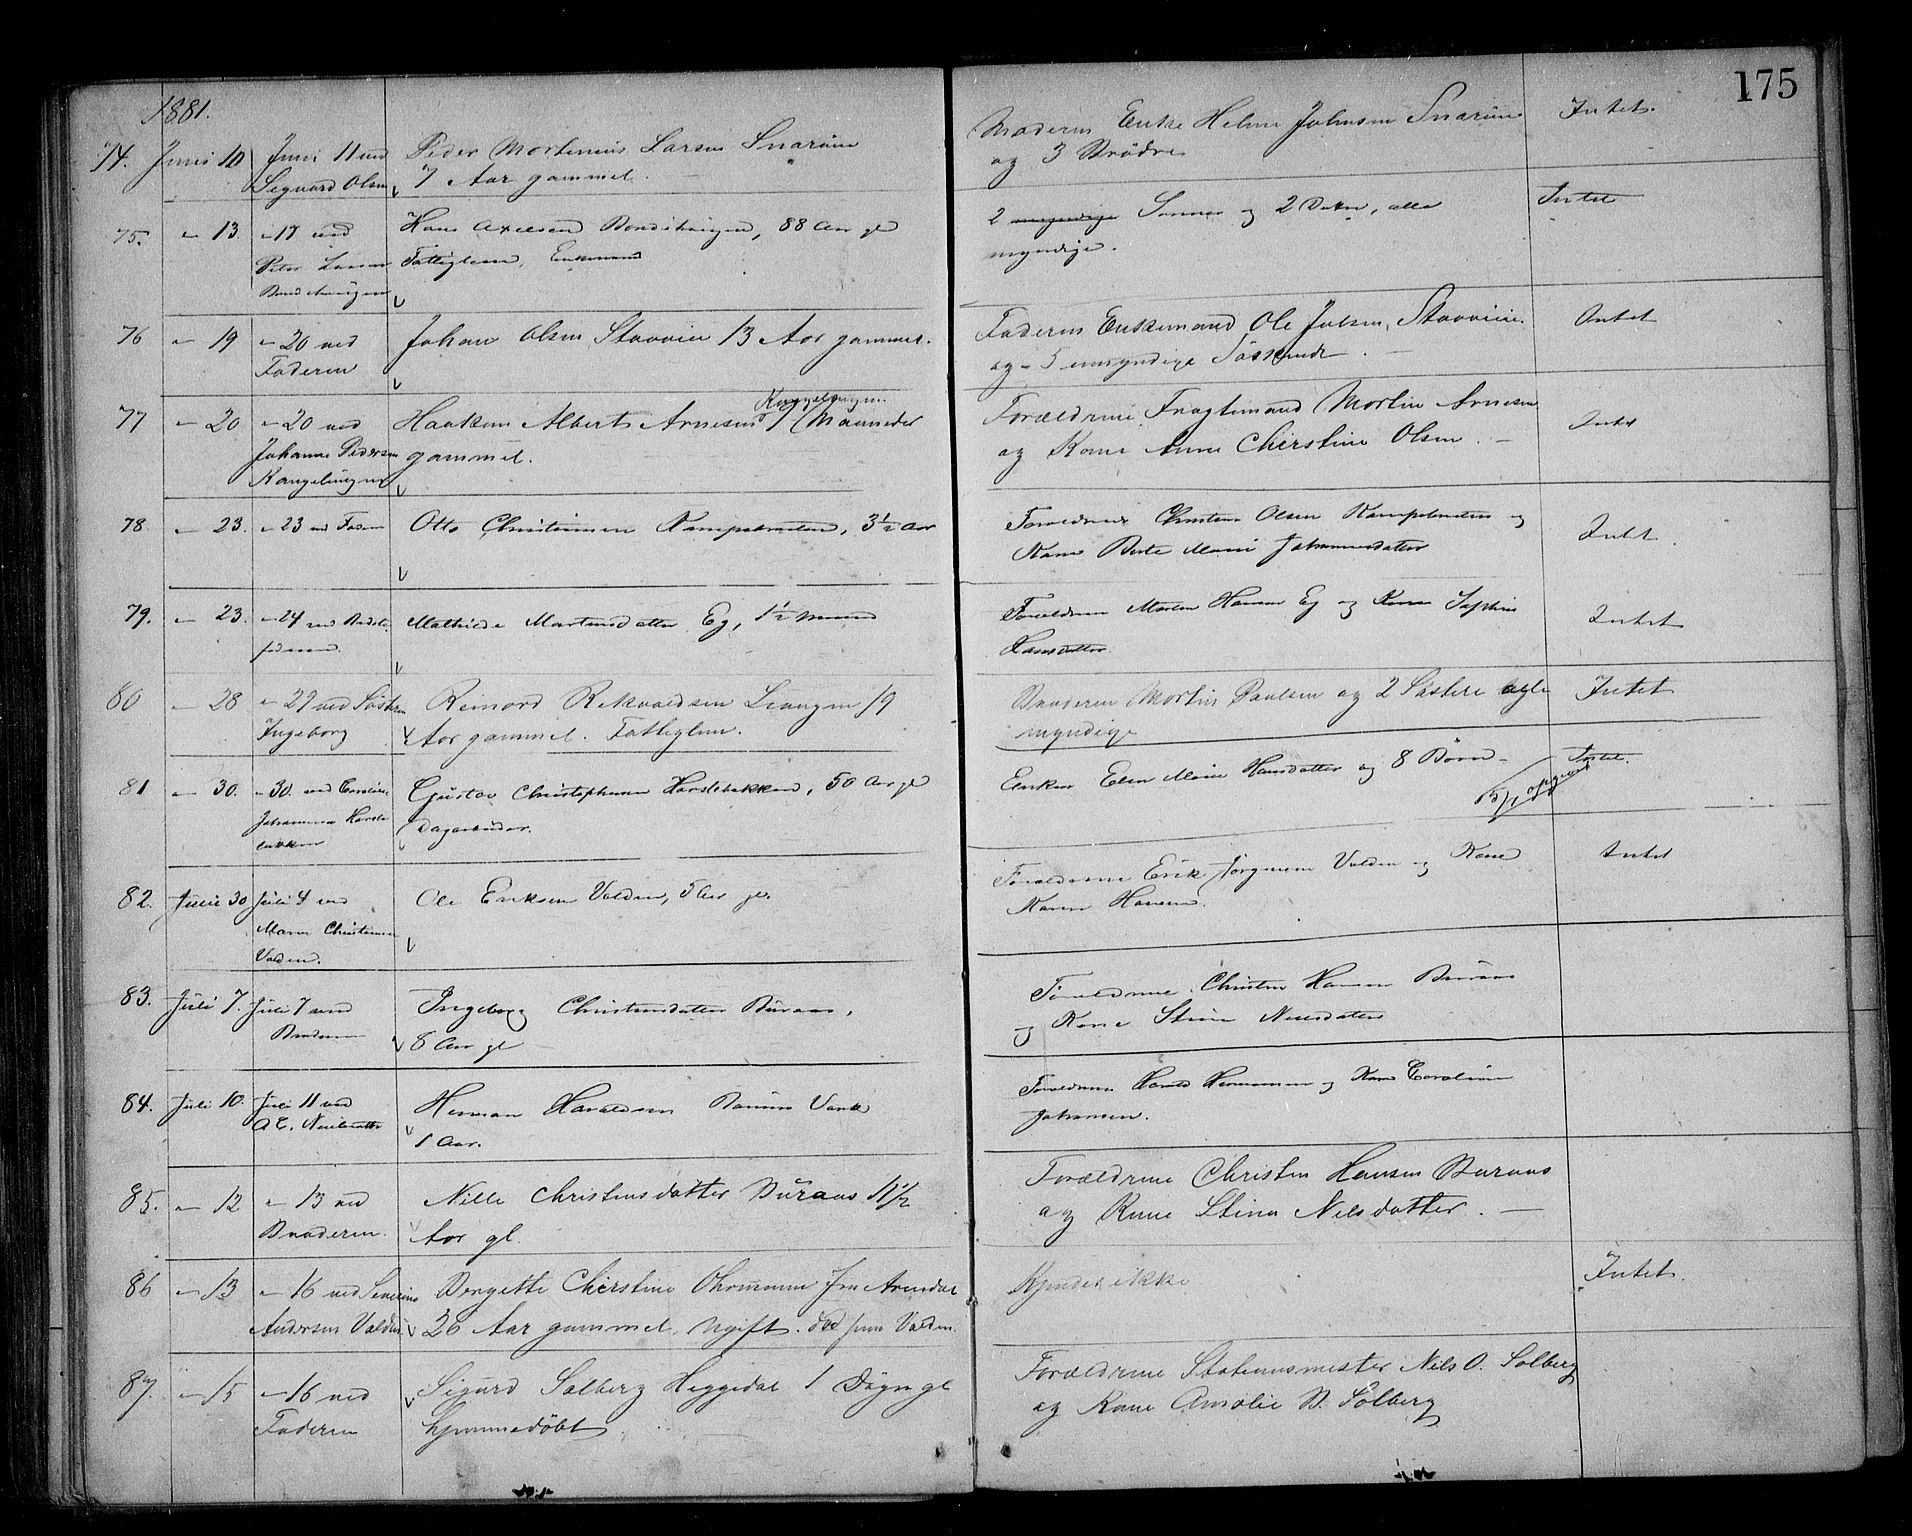 175
1881.
74. Juni 10 Juni 11 ved Peder Martinius Larsen Snarøen Moderen Enke Helene Johnsen Snarøen Intet.
Sigvard Olsen 7 Aar gammel. og 3 Brødre
75. " 13 " 17 ved Hans Axelsen 88 Aar gl 2 myndige Sønner og 2 Døtre, alle Intet
Peter Larsen Fattiglem, Enkemand myndige.
76 " 19 " 20 ved Johan Olsen Stovvien 13 Aar gammel. Faderen Enkemand Ole Julsen Stovvien Intet
Faderen og 5 umyndige Søskende.
Kongelungen
77 " 20 " 20 ved Haakon Albert Arnesen 7 Maaneder Forældrene Fragtemand Morten Arnesen Intet
Johanne Pedersen gammel. og Kone Anne Christine Olsen.
Kongelungen
78 " 23. " 23 ved Fader Otto Christensen 3½ Aar Forældrene Christen Olsen og Intet
Kone Berte Marie Johannesdatter
79. " 23. " 24 ved Bedste- Mathilde Martinsdatter Eg, 1½ Maaned Forældrene Martin Hansen Eg og Kone Sophie Intet
faderen Hansdatter
80 " 28 " 29 ved Søsteren Reinord Rekvaldsen Leangen 19 Broderen Martin Paulsen og 2 Søstere alle Intet
Ingeborg Aar gammel. Fattiglem. myndige
81 " 30. " 30. ved Caroline Gustav Christophersen Harslebakken, 50 Aar gl Enken Elen Marie Hansdatter og 8 Børn Intet.
Johannesen Harsle- Dagarbeider.
bakken
82. Juni 30 Juli 4 ved Ole Eriksen Valden, 5 Aar gl. Forældrene Erik Jørgensen Valden og Kone Intet
Maren Christensen Karen Hansen.
Valden.
83. Juli 7. Juli 7 ved Ingeborg Christensdatter Buraas, Forældrene Christen Hansen Buraas
Broderen 8 Aar gl og Kone Stine Nilsdatter
84. Juli 10. Juli 11 ved Herman Haraldsen Bærums Værk Forældrene Harald Hermansen og Kone Caroline
A. E. 1 Aar. Johansen.
85. " 12 " 13 ved Nille Christensdatter Buraas 11½ Forældrene Christen Hansen Buraas
Broderen. Aar gl. og Kone Stina Nilsdatter.
86 " 13 " 16 ved Severine Bergette Christine fra Arendal Kjendes ikke Intet.
Andersen Valden 26 Aar gammel, ugift. død paa Valden.
87. " 15 " 16 ved Sigurd Solberg Heggedal 1 Døgn gl Forældrene Stationsmester Nils O. Solberg
Faderen hjemmedøbt og Kone Amalie B. Solberg